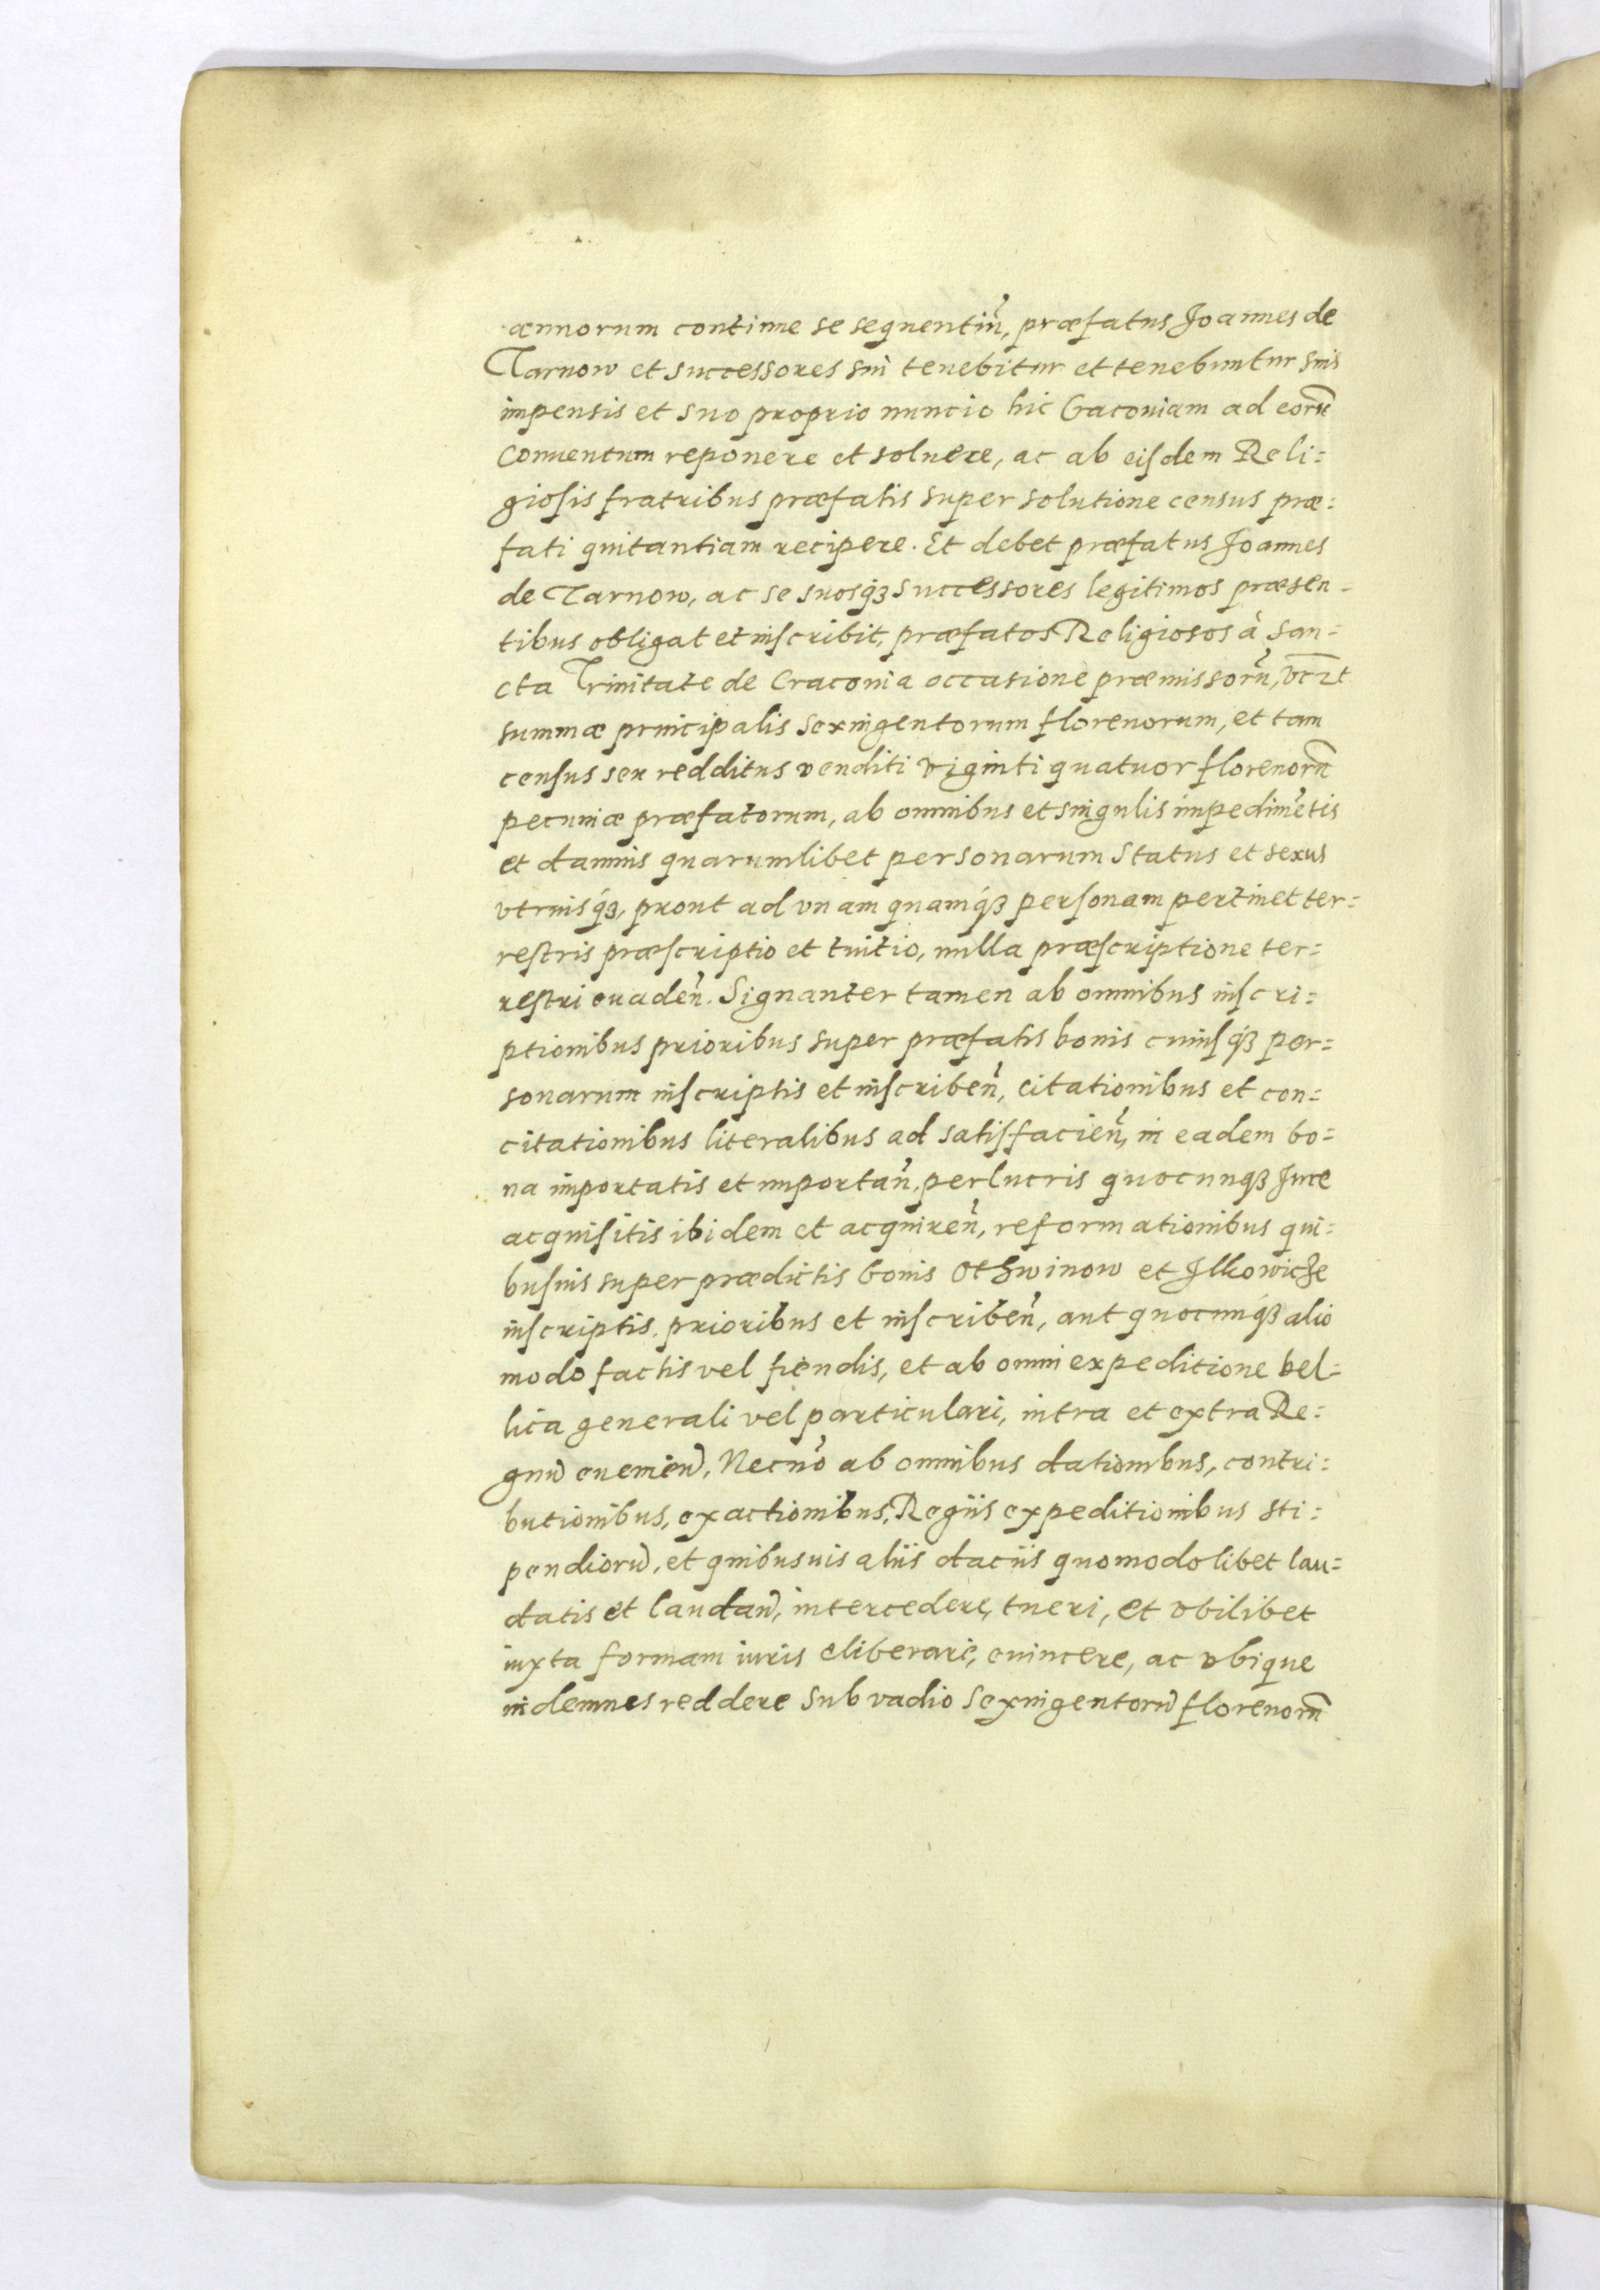 annorum continue se sequentiũ, præfatus Joannes de
Tarnow et successores sui tenebitur et tenebuntur suis
impensis et suo proprio nuncio hic Cracoviam ad eorũ
Conuentum reponere et soluere, ac ab eisdem Reli=
giosis fratribus præfatis super solutione census præ=
fati quitantiam recipere. Et debet præfatus Joannes
de Tarnow, ac se suosqȝ successores legitimos præsen-
tibus obligat et inscribit, præfatos Religiosos à San=
cta Trinitate de Cracouia occasione præmissorũ,
summæ principalis sexingentorum florenorum, et tam
census seu redditus venditi viginti quatuor florenorũ
pecuniæ præfatorum, ab omnibus et singulis impedimẽtis
et damnis quarumlibet personarum status et sexus
vtriusqȝ, prout ad vnam quamqȝ personam pertinet ter=
restris præscriptio et tuitio, nulla præscriptione ter=
restri euadeñ. Signanter tamen ab omnibus inscri=
ptionibus prioribus super præfatis bonis cuiusqȝ per=
sonarum inscriptis et inscribeñ, citationibus et con=
citationibus literalibus ad satisfacieñ, in eadem bo=
na importatis et importañ, perlucris quocunqȝ Jure
acquisitis ibidem et acquireñ, reformationibus qui=
busuis super prædictis bonis Othwinow et Jlkowicze
inscriptis, prioribus et inscribeñ, aut quocunqȝ alio
modo factis vel fiendis, et ab omni expeditione bel=
lica generali vel particulari, intra et extra Re=
gnũ euenieñ, Necnõ ab omnibus dationibus, contri=
butionibus, exactionibus, Regiis expeditionibus sti=
pendiorũ, et quibusuis aliis daciis quomodolibet lau=
datis et laudañ, intercedere, tueri, et vbilibet
iuxta formam iuris eliberare, euincere, ac vbique
indemnes reddere sub vadio sexingentorũ florenorũ